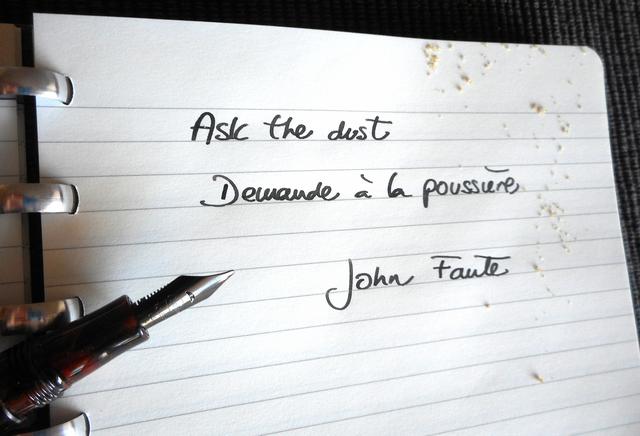 Ask the dust
Demande à la poussière
John Fante